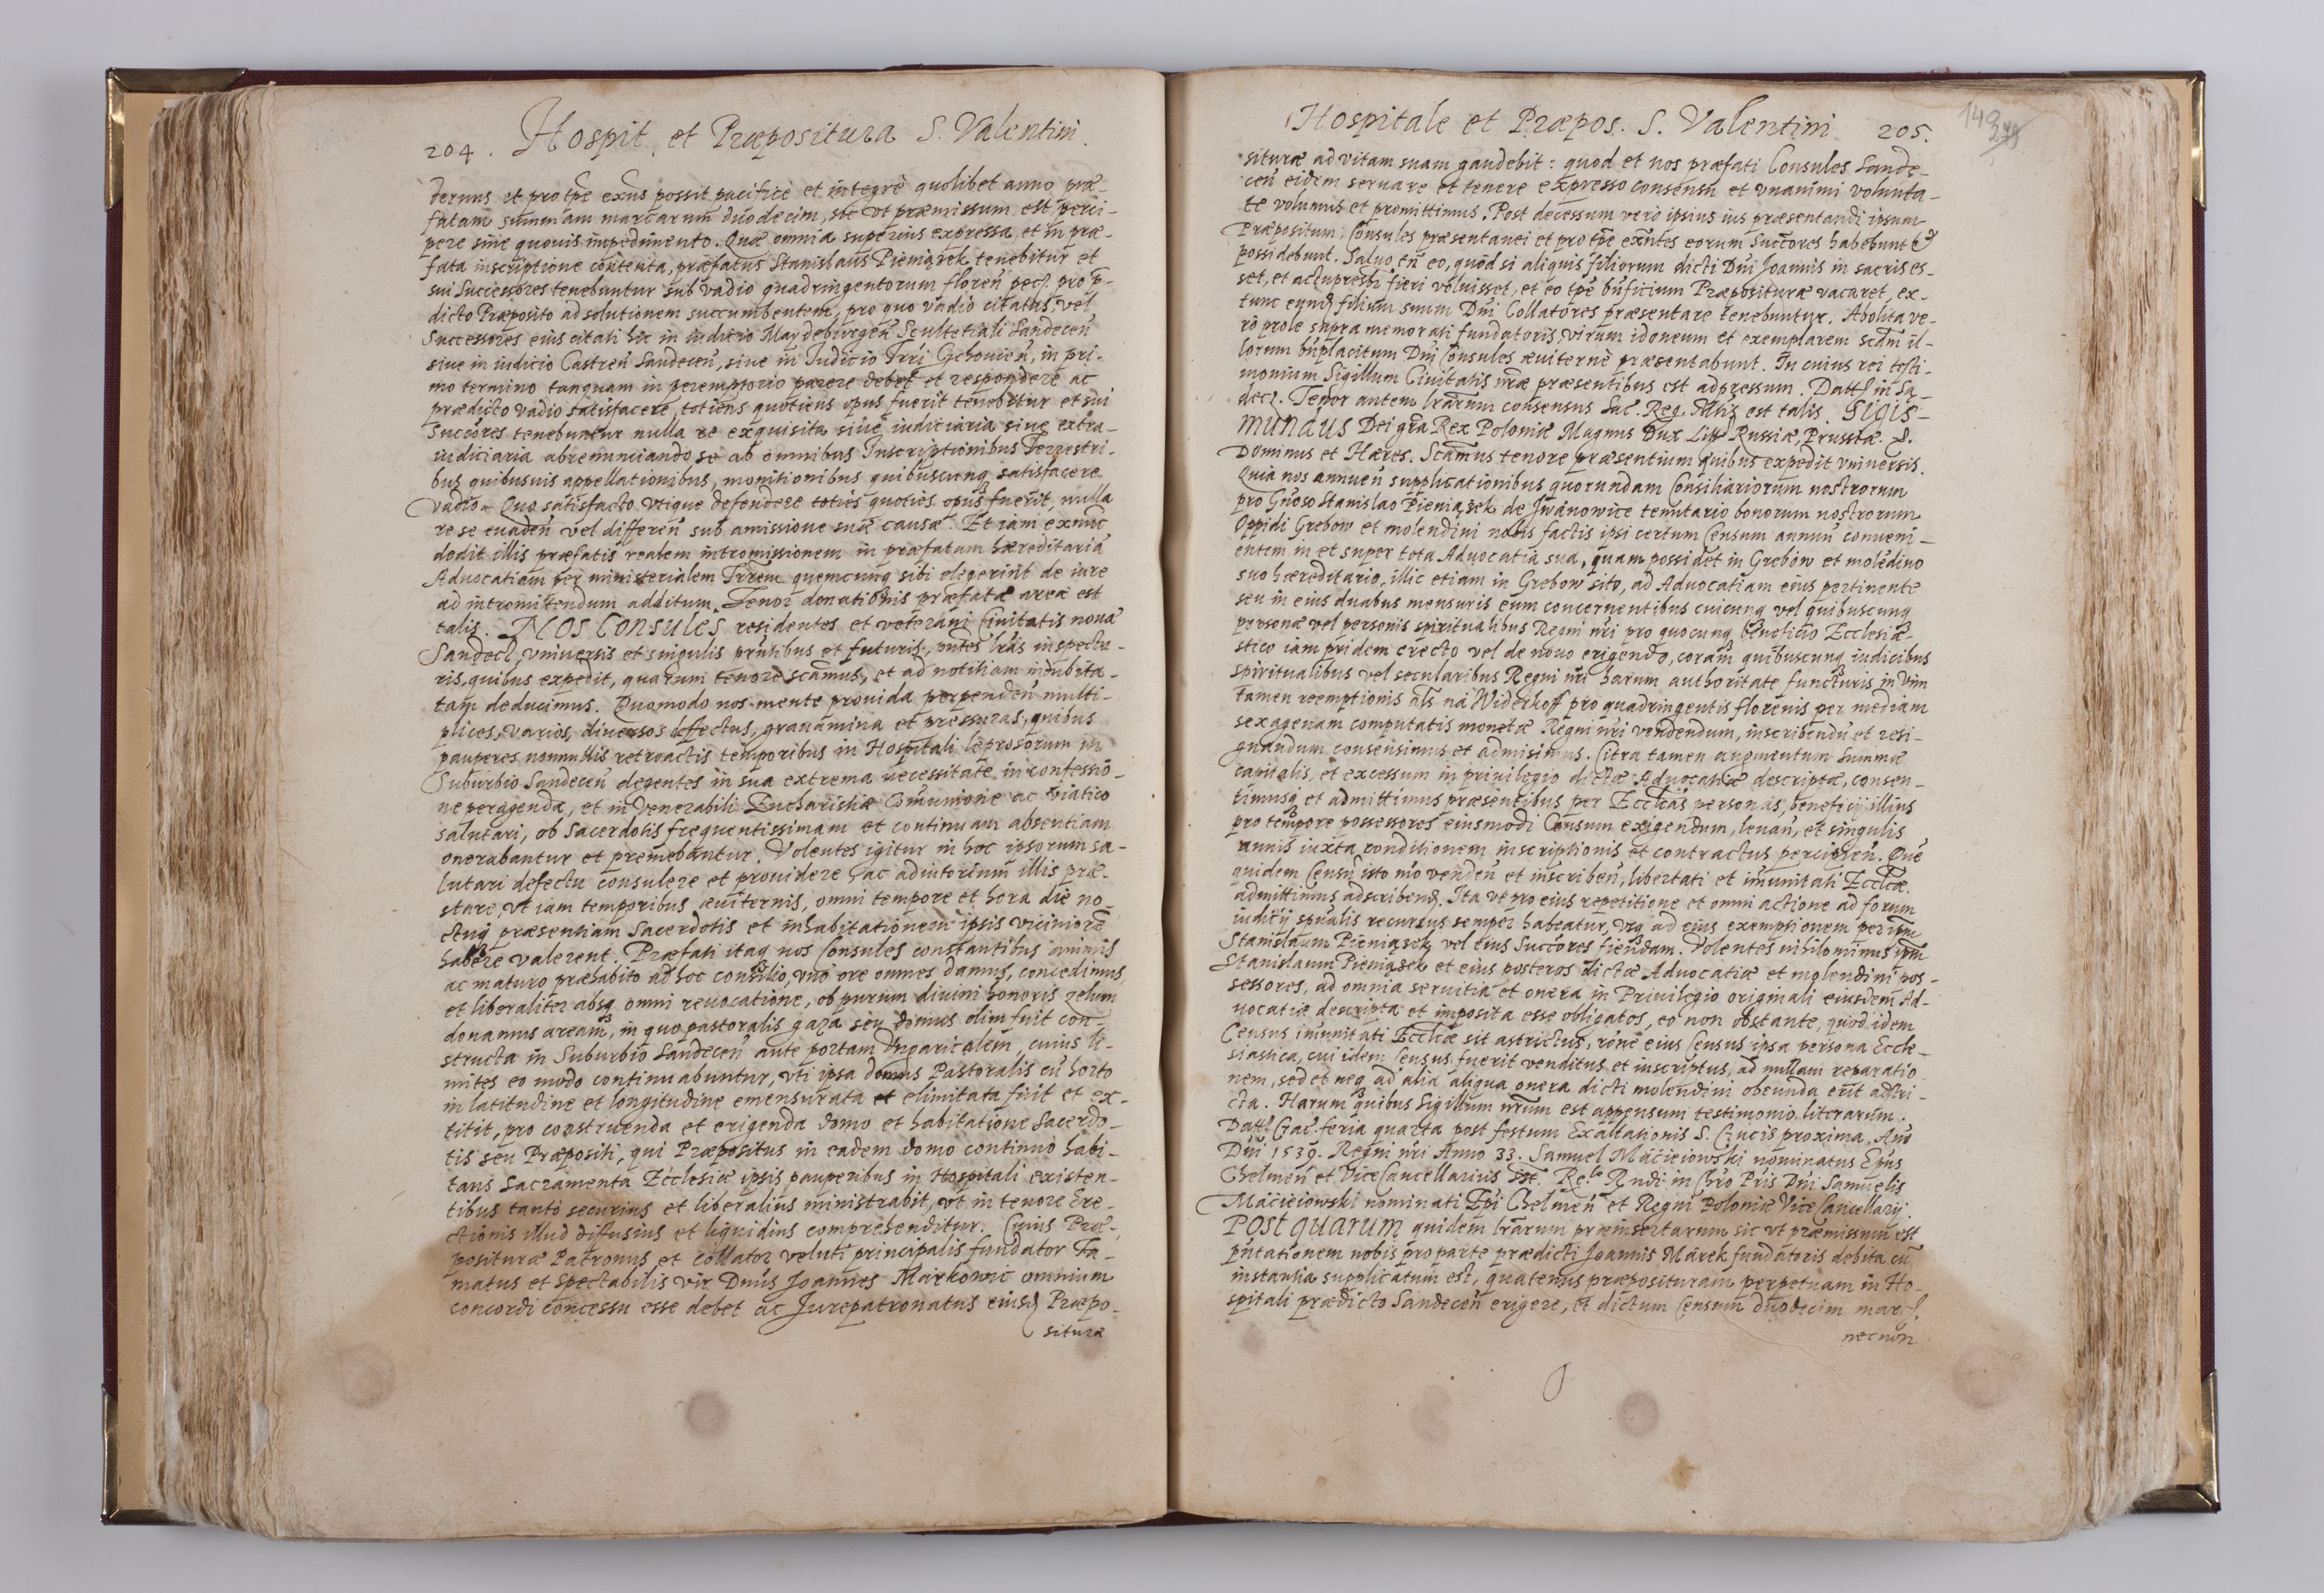 204. Hospit. et Præpositura S. Valentini.
dernus et pro tpe exn̄s possit pacificè et integrè quolibet anno præ-
fatam summam marcarum duodecim, sic vt præmissum est perci-
pere sine quouis impedimento. Quæ omnia superius expressa et in præ-
fata inscriptione contenta, præfatus Stanislaus Pieniążek tenebitur et
sui Successores tenebuntur sub vadio quadringentorum floren̄ pec. pro p-
dicto Præposito ad solutionem succumbentem, pro quo vadio citatus, vel
Successores eius citati hic in iudicio Maydeburgen̄ Scultetiali Sandecen̄
siue in iudicio Castren̄ Sandecen̄, siue in Iudicio Trri Cchouien̄, in pri-
mo termino tanquam in peremptorio parere debet et respondere ac
prædicto vadio satisfacere, totiens quotiens opus fuerit tenebitur et sui
Succōres tenebuntur nulla re exquisita siue iudiciaria siue extra-
iudiciaria abrenunciando se ab omnibus Inscriptionibus Terrestri-
bus quibusuis appellationibus, monitionibus quibuscunq satisfacere
vadio. Quo satisfacto vtique defendere totiēs quotiēs opus fuerit, nulla
re se euaden̄ vel differen̄ sub amissione suæ causæ. Et iam exnūc
dedit illis præfatis realem intromissionem in præfatam hæreditariā
Aduocatiam per ministerialem Trrēm quemcunq sibi elegerint de iure
ad intromittendum additum. Tenor donationis præfatæ areæ est
talis. NOS CONSULES residentes et veterani Ciuitatis nouæ
Sandecz, vniuersis et singulis prntibus et futuris, pntes lrās inspectu-
ris, quibus expedit, quarum tenore scāmus, et ad notitiam indubita-
tam deducimus. Quomodo nos mente prouida perpenden̄ multi-
plices, varios, diuersos defectus, grauamina et pressuras, quibus
pauperes nonnullis retroactis temporibus in Hospitali leprosorum in
Suburbio Sandecen̄ degentes in sua extrema necessitate in confessio-
ne peragenda, et in Venerabili Eucharistiæ Com̄unione ac viatico
salutari, ob Sacerdotis frequentissimam et continuam absentiam
onerabantur et premebantur. Volentes igitur in hoc ipsorum sa-
lutari defectu consulere et prouidere hac adiutorium illis præ-
stare, vt iam temporibus æuiternis, omni tempore et hora die no-
ctuq præsentiam Sacerdotis et inhabitationem ipsis viciniorē
habere valerent. Præfati itaq nos Consules constantibus animis
ac maturo præhabito ad hoc consilio, vno ore omnes damus, concedimus,
et liberaliter absq omni reuocatione, ob purum diuini honoris zelum
donamus aream, in qua pastoralis gaza seu domus olim fuit con-
structa in Suburbio Sandecen̄ ante portam Vngaricalem, cuius li-
mites eo modo continuabuntur, vti ipsa domus Pastoralis cū horto
in latitudine et longitudine emensurata et elimitata fuit et ex-
titit, pro construenda et erigenda domo et habitatione Sacerdo-
tis seu Præpositi, qui Præpositus in eadem domo continuò habi-
tans Sacramenta Ecclesiæ ipsis pauperibus in Hospitali existen-
tibus tantò securius et liberalius ministrabit, vt in tenore Ere-
ctionis illud diffusius et liquidius comprehenditur. Cuius Præ-
posituræ Patronus et collator veluti principalis fundator Fa-
matus et spectabilis vir Dnūs Joannes Markowic omnium
concordi concessu esse debet ac Jurepatronatus eiusd Præpo-
situræ
Hospitale et Præpos. S. Valentini 205.
149
situræ ad vitam suam gaudebit: quod et nos præfati Consules Sande-
cen̄ eidem seruare et tenere expresso consensu et vnanimi volunta-
te volumus et promittimus. Post decessum verò ipsius ius præsentandi ipsum
Præpositum: Consules præsentanei et pro tpe exn̄tes eorum Succōres habebunt et
possidebunt. Saluo tn̄ eo, quòd si aliquis filiorum dicti Dnī Joannis in sacris es-
set, et actu presbr̄ fieri voluisset, et eo tpe bn̄ficium Præposituræ vacaret, ex-
tunc eund filium suum Dnī Collatores præsentare tenebuntur. Abolita ve-
rò prole supra memorati fundatoris, virum idoneum et exemplarem scdm̄ il-
lorum bn̄placitum Dnī Consules æuiternè præsentabunt. In cuius rei testi-
monium Sigillum Ciuitatis nræ præsentibus est adpressum. Datt in Sa-
decz. Tenor autem lrarum consensus Sac. Reg. Mtis est talis. SIGIS-
MUNDUS Dei gra Rex Poloniæ Magnus Dux Litt. Russiæ, Prussiæ. &.
Dominus et Hæres. Scāmus tenore præsentium quibus expedit vniuersis.
Quia nos annuen̄ supplicationibus quorundam Consiliariorum nostrorum
pro Gnoso Stanislao Pieniązek de Jwanowice tenutario bonorum nostrorum
Oppidi Grebow et molendini nobis factis ipsi certum Censum annuū conueni-
entem in et super tota Aduocatia sua, quam possidet in Grebow et molēdino
suo hæreditario, illic etiam in Grebow sito, ad Aduocatiam eius pertinente
seu in eius duabus mensuris eum concernentibus cuicunq vel quibuscunq
personæ vel personis spiritualibus Regni nri pro quocunq beneficio Ecclesiā-
stico iam pridem erecto vel de nouo erigendo, coram quibuscunq iudicibus
spiritualibus vel secularibus Regni nri harum authoritate functuris in vim
tamen reemptionis als na Widerkoff pro quadringentis florenis per mediam
sexagenam computatis monetæ Regni nri vendendum, inscribendū et resi-
gnandum consensimus et admisimus. Citra tamen augmentum summæ
capitalis, et excessum in priuilegio dictæ Aduocatiæ descriptæ, consen-
timusq et admittimus præsentibus per Ecclīcas personas, beneficij illius
pro tempore possessores eiusmodi Censum exigendum, leuan̄, et singulis
annis iuxta conditionem inscriptionis et contractus percipien̄. Quē
quidem Censū isto mō venden̄ et inscriben̄, libertati et imunitati Ecclīcæ.
admittimus adscribend. Ita vt pro eius repetitione et omni actione ad forum
iudicij spūalis recursus semper habeatur, vsq ad eius exemptionem per ipm
Stanislaum Pieniązek vel eius Succōres fiendam. Volentes nihilominus ipm
Stanislaum Pieniązek et eius posteros dictæ Aduocatiæ et molendini pos-
sessores, ad omnia seruitia et onera in Priuilegio originali eiusdem Ad-
uocatiæ descripta et imposita esse obligatos, eo non obstante, quòd idem
Census imunitati Ecclīcæ sit astrictus, rōne eius Census ipsa persona Eccle-
siastica, cui idem Census fuerit venditus et inscriptus, ad nullam reparatio-
nem, sed et neq ad alia aliqua onera dicti molendini obeunda erit adstri-
cta. Harum quibus Sigillum nrum est appensum testimonio literarum.
Datt Crac. feria quarta post festum Exaltationis S. Crucis proxima. Anō
Dnī 1539. Regni nri Anno 33. Samuel Maciejowski nominatus Epus
Chelmen̄ et Vice Cancellarius sst. Rel. Rndi in Chro Pris Dnī Samuelis
Maciejowski nominati Epī Chelmen̄ et Regni Poloniæ Vice Cancellarij.
POST QUARUM quidem lrarum præinsertarum sic vt præmissum est
pntationem nobis pro parte prædicti Joannis Marek fundatoris debita cū
instantia supplicatum est, quatenus præposituram perpetuam in Ho-
spitali prædicto Sandecen̄ erigere, et dictum Censum duodecim marc.
necnōn